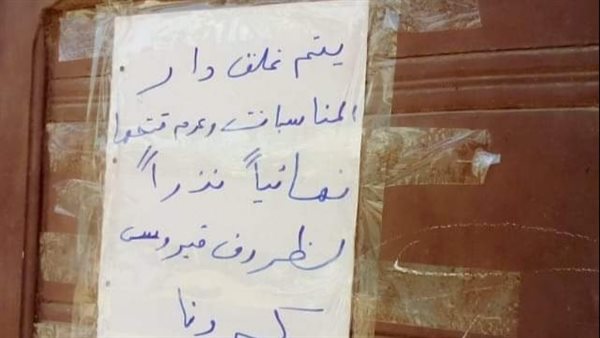 يتم غلق دار
المناسبات وعدم فتحها
نهائياً نذراً
لظروف فيروس
كرونا